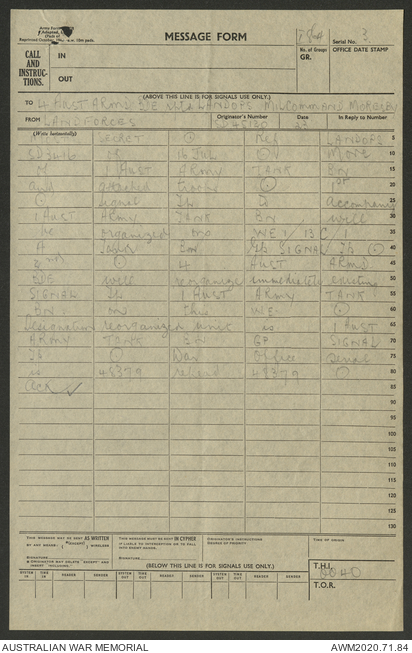 MESSAGE FORM
Serial No. 3
CALL AND INSTRUC- TIONS.
IN
OUT
No. of Groups GR.
OFFICE DATE STAMP
(ABOVE THIS LINE IS FOR SIGNALS USE ONLY.)
TO 4 AUST ARMD BDE LANDOPS MILCOMMAND MORESBY
FROM LANDFORCES
Originator's Number SD45130
Date 23
In Reply to Number
(Write horizontally)
SECRET ⊙ Ref LANDOPS 5
16 JUL ⊙ Move 10
of 1 AUST ARMY TANK BN 15
and attached troops ⊙ 1st 20
⊙ Signal Tp to accompany 25
1 AUST ARMY TANK BN will 30
be reorganized on WE 35
A Bn SIGNAL Tp ⊙ 40
2nd ⊙ 4 AUST ARMD 45
BDE will reorganize immediately existing 50
SIGNAL Tp 1 AUST ARMY TANK 55
BN on this WE ⊙ 60
Designation reorganized unit is 1 AUST 65
ARMY TANK BN GP SIGNAL 70
Tp ⊙ War Office serial 75
is 48379 repeat 48379 ⊙ 80
Ack 85
90
95
100
105
110
115
120
125
130
THIS MESSAGE MAY BE SENT AS WRITTEN BY ANY MEANS
WIRELESS
THIS MESSAGE MUST BE SENT IN CYPHER
ORIGINATOR'S INSTRUCTIONS DEGREE OF PRIORITY.
TIME OF ORIGIN
(BELOW THIS LINE IS FOR SIGNALS USE ONLY.)
T.H.I. 0040
T.O.R.
SYSTEM IN TIME IN READER SENDER SYSTEM OUT TIME OUT READER SENDER SYSTEM OUT TIME OUT READER SENDER
AUSTRALIAN WAR MEMORIAL
AWM2020.71.84